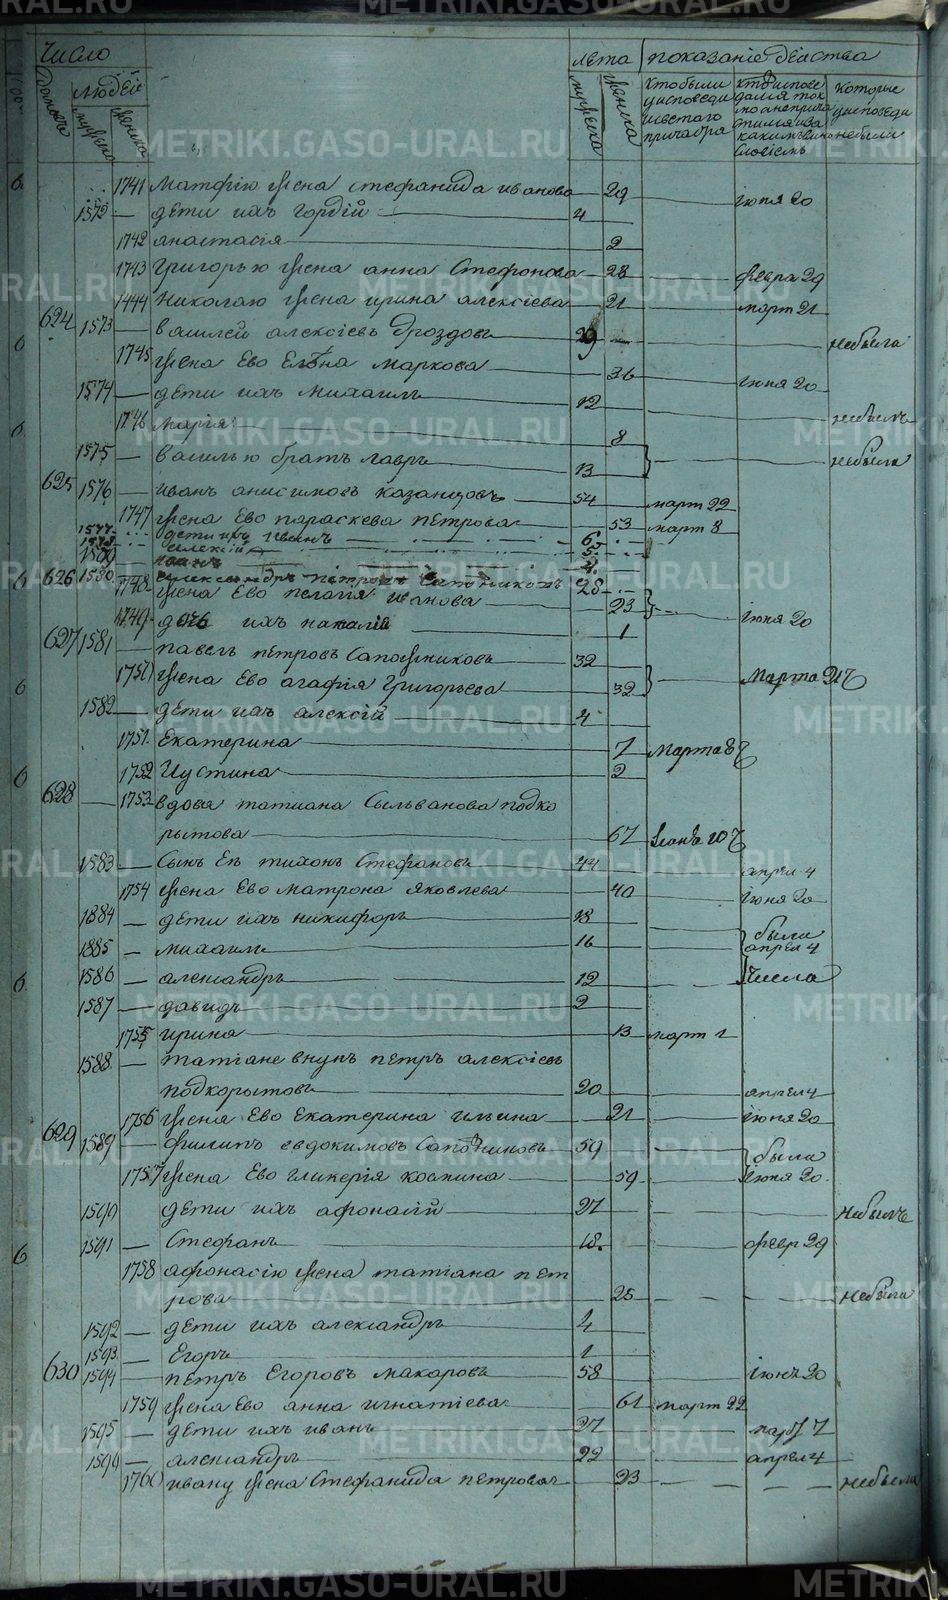 METRIKI.GASO-URAL.RU
Число лета показание действа
домовъ людей
мужеска женска мужеска женска
ктобыли уисповеди исвятаго причастiя ктоисповедался токмо анепричастился иза какимъ винословiемъ которые уисповеди небыли
1741 матфiю жена стефанида иванова 29 iюня 20
1572 — дети ихъ гордiй 4
1742 анастасiя 2
1743 григорью жена анна Стефонова 28 февра 29
1444 николаю жена ирина алексiева 21 март 21
624 1573 — василей алексiевъ дроздовъ 29 небыла
1745 жена Ево Елена маркова 36 iюня 20
1574 — дети ихъ михаилъ 12 небылъ
1746 марiя 8
1575 — василью братъ лавръ 13 небыла
625 1576 — иванъ анисимовъ казанцовъ 54 март 22
1747 жена Ево параскева петрова 53 март 8
1577 дети ихъ иванъ 6
1578 алексiй 5
1579 иванъ 4
626 1580 александръ петровъ Сапожниковъ 28
1748 жена Ево пелагiя иванова 23
1749 дочь ихъ наталiя 1 iюня 20
627 1581 — павелъ петровъ Сапожниковъ 32
1750 жена Ево агафiя григорьева 32 марта 21 Ч
1582 — дети ихъ алексiй 4
1751 Екатерина 7 марта 8 Ч
1752 Иустина 2
628 — 1753 вдова татиана Сильванова подко
рытова 67 10 Ч
1583 — Сынъ Ея тихонъ Стефановъ 44 апрел 4
1754 жена Ево матрона яковлева 40 iюня 20
1884 — дети ихъ никифоръ 18
1885 — михаилъ 16 были апрел 4
1586 — александръ 12 числа
1587 — давидъ 2
1755 ирина 13 март 1
1588 — татiане внукъ петръ алексiевъ
подкорытовъ 20 апрел 4
1756 жена Ево Екатерина ильина 21 iюня 20
629 1589 — филипъ евдокимовъ Сапожниковъ 59 была
1757 жена Ево гликерiя космина 59 iюня 20.
1590 дети ихъ афонасiй 27 небылъ
1591 — Стефанъ 18. февр 29
1758 афонасiю жена татiана пет
рова 25 небыла
1592 — дети ихъ александръ 4
1593 — Егоръ 1
630 1594 — петръ Егоровъ макаровъ 58 iюнъ 20
1759 жена Ево анна игнатiева 61 март 22
1595 — дети ихъ иванъ 27 март 7
1596 — александръ 22 апрел 4
1760 ивану жена Стефанида петрова 23 небыла